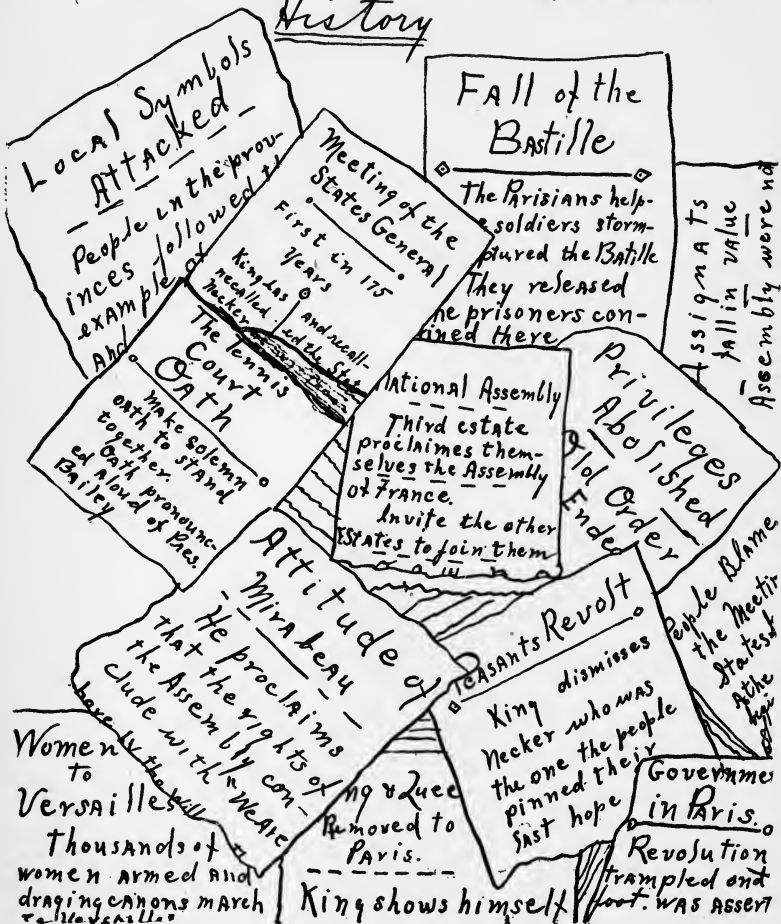 History
Local Symbols
Attacked
People in the prov-
inces followed th
example of
And
Meeting of the
States General
First in 175
Years
King has
recalled and recall-
Necker ed the Stat
Fall of the
Bastille
The Parisians help-
soldiers storm-
ptured the Batille
They released
he prisoners con-
ined there
Assignats
fall in value
Assembly were no
The Tennis
Court
Oath
Make solemn
oath to stand
together.
Oath pronounc-
ed aloud of Pres.
Bailey
National Assembly
Third estate
proclaimes them-
selves the Assembly
of France.
Invite the other
Estates to join them
Privileges
Abolished
Old Order
Ended
People Blame
the Meetin
States
Attitude of
Mirabeau
He proclaims
that the rights of
the Assembly con-
clude with "We are
here by the will
Peasants Revolt
King dismisses
Necker who was
the one the people
pinned their
last hope
Women
to
Versailles
Thousands of
women armed and
draging canons march
to Versailles
ng & Quee
Removed to
Paris.
King shows himself
Governmen
in Paris.
Revolution
trampled ond
foot. was assert